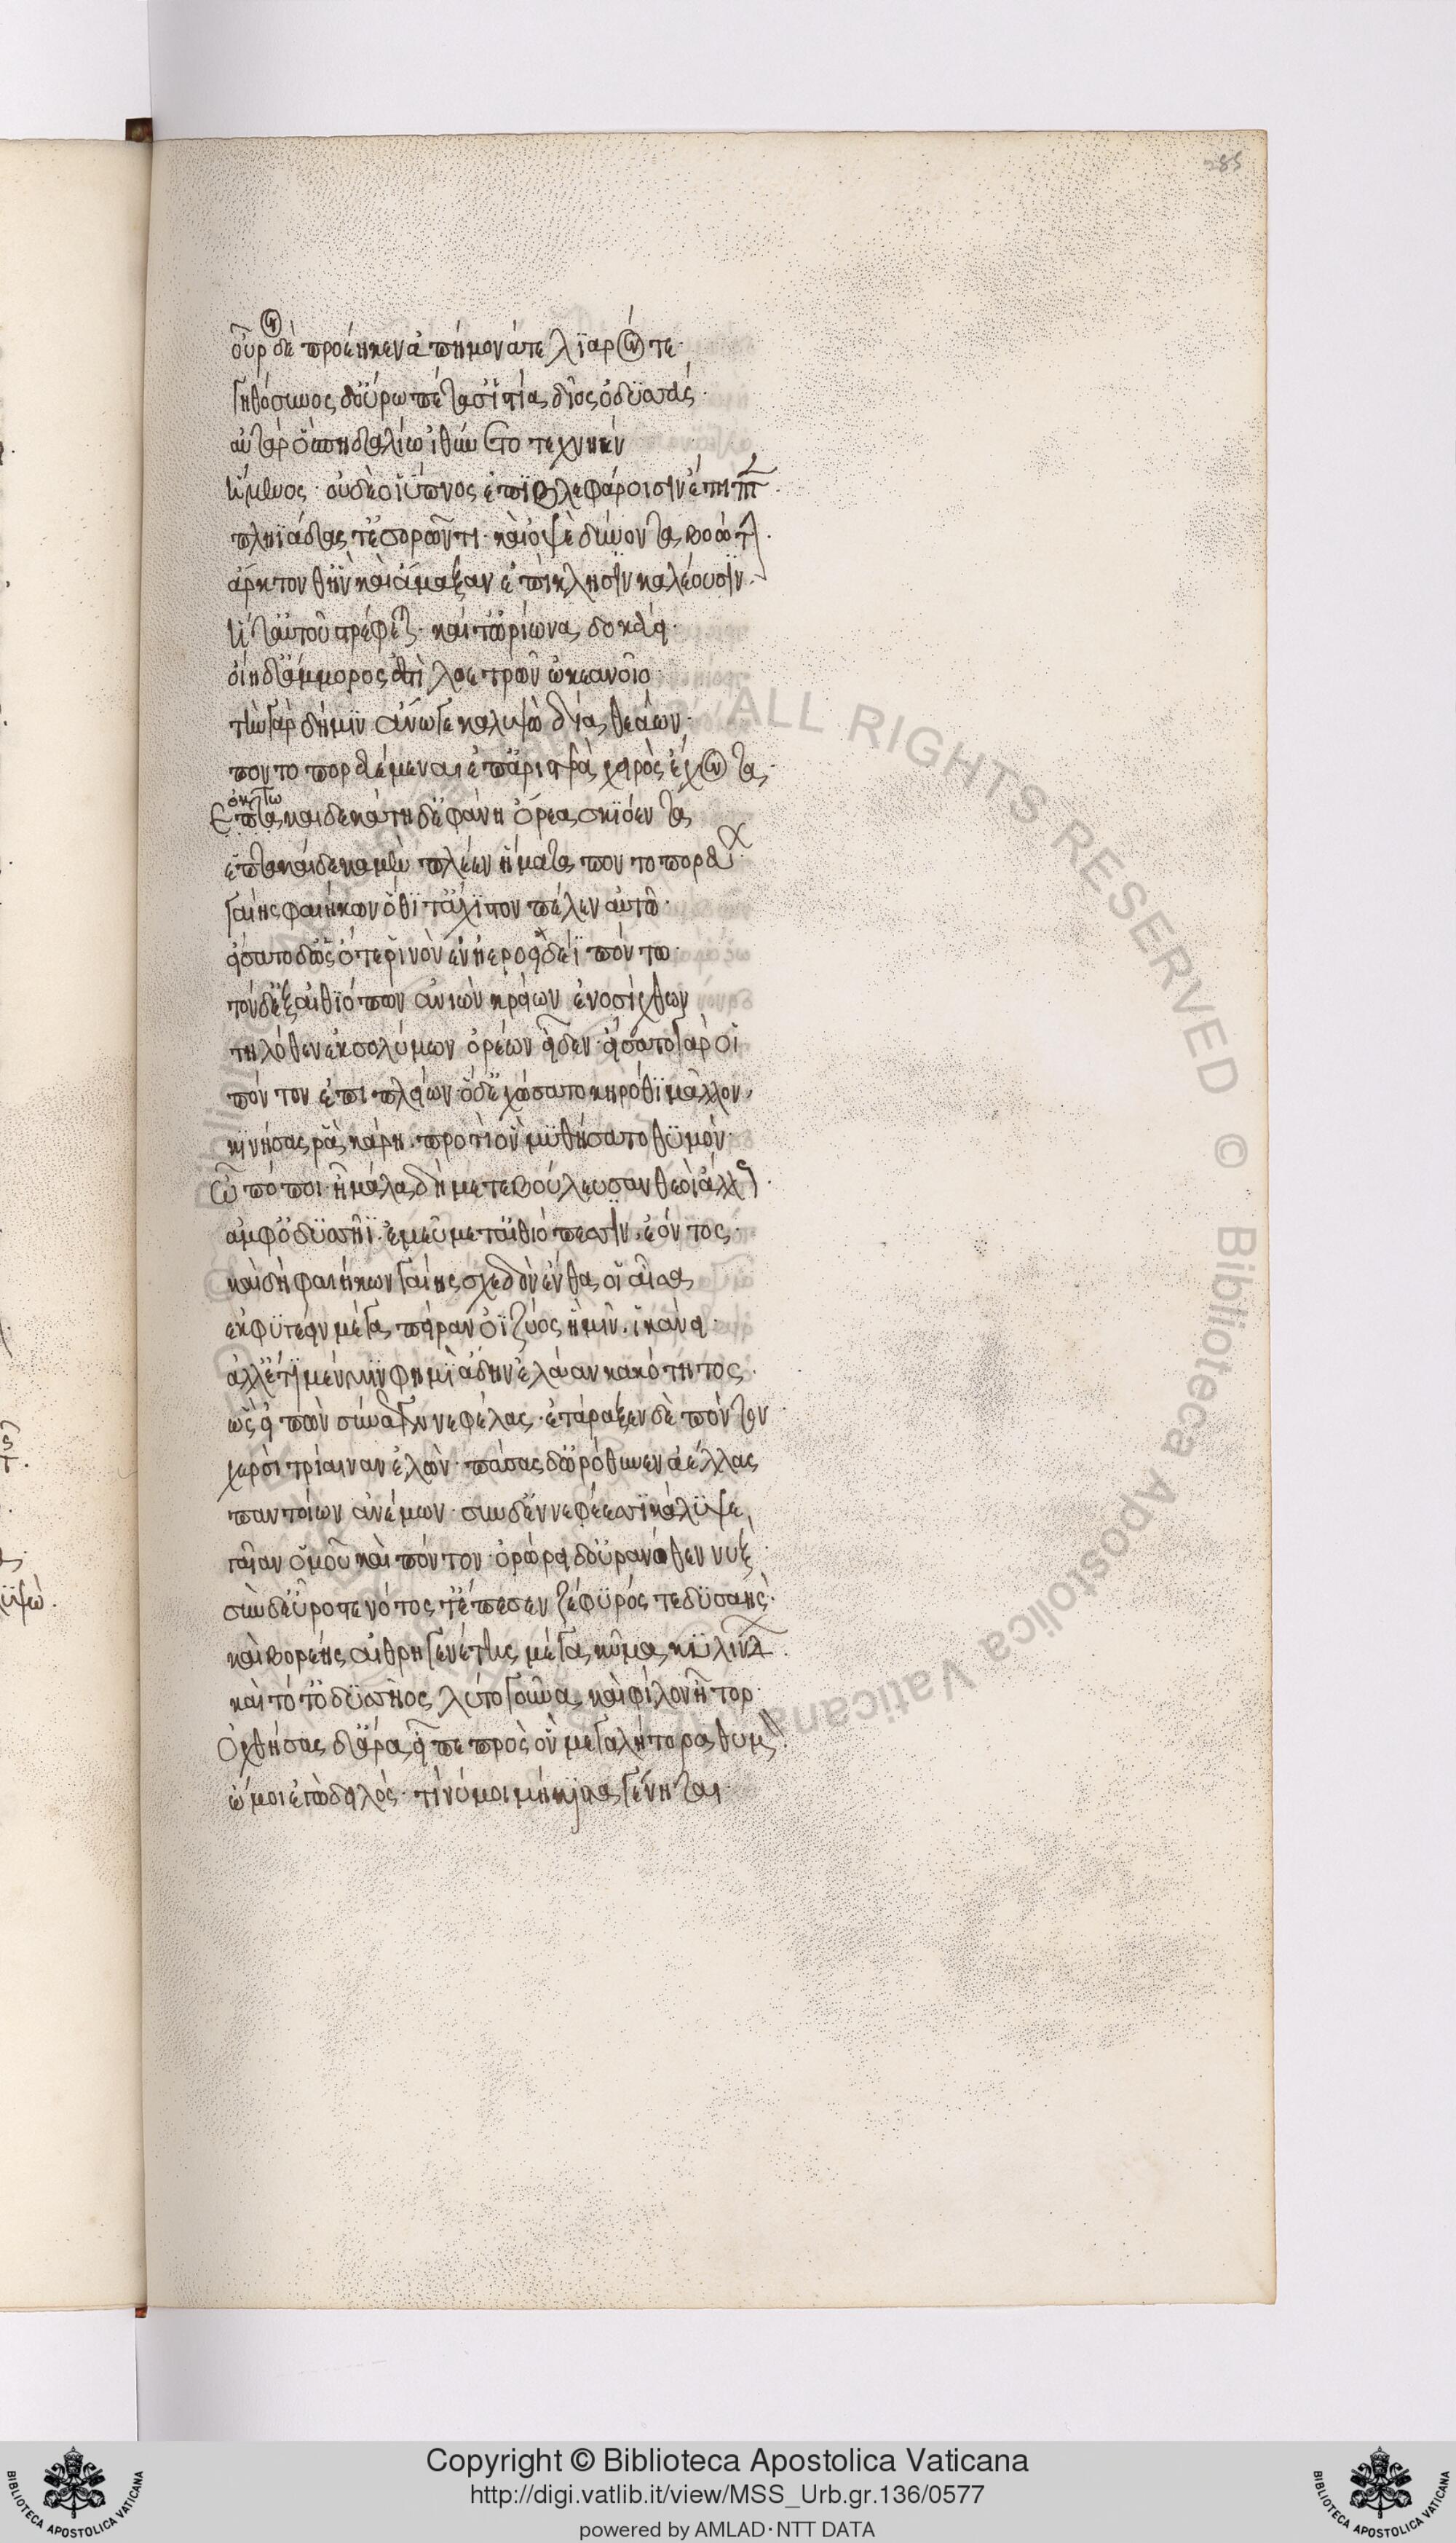 285
οὖρον δὲ προέηκεν ἀπήμονά τε λϊαρόν τε·
γηθόσυνος δ' οὔρω πέτασ' ἱστία δῖος ὀδυσσεύς·
αὐτὰρ ὁ πηδαλίω ἰθύνετο τεχνηέντως
ἥμενος· οὐδέ οἱ ὕπνος ἐπὶ βλεφάροισιν ἔπιπτεν·
πληϊάδας τ' ἐσορῶντι· καὶ ὀψὲ δύοντα βοώτην·
ἄρκτον θ' ἣν καὶ ἄμαξαν ἐπίκλησιν καλέουσιν·
ἥ τ' αὐτοῦ στρέφεται· καί τ' ὠρίωνα δοκεύει·
οἴη δ' ἄμμορος ἐστὶ λοετρῶν ὠκεανοῖο·
τὴν γὰρ δή μιν ἄνωγε καλυψὼ δῖα θεάων·
ποντοπορευέμεναι ἐπ' ἀριστερὰ χειρὸς ἔχοντα·
οκτω
Επτακαιδεκάτη δ' ἐφάνη ὄρεα σκιόεντα
ἑπτακαίδεκα μὲν πλέεν ἤματα ποντοπορεύων·
γαίης φαιήκων ὅθι τ' ἄγχιστον πέλεν αὐτῶ·
εἴσατο δ' ὡς ὅτε ῥινὸν ἐν ἠεροειδέϊ πόντω·
τὸν δ' ἐξ αἰθιόπων ἀνιὼν κρείων ἐνοσίχθων
τηλόθεν ἐκ σολύμων ὀρέων εἶδεν· εἴσατο γάρ οἱ
πόντον ἐπιπλείων· ὁ δ' ἐχώσατο κηρόθι μᾶλλον,
κινήσας ῥα κάρη· προτὶ ὃν μυθήσατο θυμόν·
Ὢ πόποι ἦ μάλα δὴ μετεβούλευσαν θεοὶ ἄλλως·
ἀμφ' ὀδυσῆϊ· ἐμεῦ μετ' αἰθιόπεσσιν ἐόντος·
καὶ δὴ φαιήκων γαίης σχεδὸν ἔνθα οἱ αἶσα
ἐκφυγέειν μέγα πεῖραρ ὀϊζύος ἥ μιν ἱκάνει·
ἀλλ' ἔτι μέν μιν φημὶ ἄδην ἐλάαν κακότητος·
ὣς εἰπὼν σύναγεν νεφέλας· ἐτάραξεν δὲ πόντον
χερσὶ τρίαιναν ἑλών· πάσας δ' ὀρόθυνεν ἀέλλας
παντοίων ἀνέμων· σὺν δὲ νεφέεσσι κάλυψε,
γαῖαν ὁμοῦ καὶ πόντον· ὀρώρει δ' οὐρανόθεν νύξ·
σὺν δ' εὖρός τε νότος τ' ἔπεσεν ζέφυρός τε δυσαής·
καὶ βορέης αἰθρηγενέτης μέγα κῦμα κυλίνδων·
καὶ τότ' ὀδυσσῆος λύτο γούνατα καὶ φίλον ἦτορ·
Ὀχθήσας δ' ἄρα εἶπε πρὸς ὃν μεγαλήτορα θυμόν·
ὤ μοι ἐγὼ δειλός· τί νύ μοι μήκιστα γένηται·
Copyright © Biblioteca Apostolica Vaticana
http://digi.vatlib.it/view/MSS_Urb.gr.136/0577
powered by AMLAD·NTT DATA